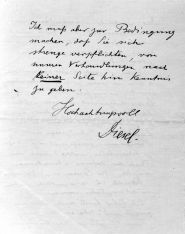 Ich muß aber zur Bedingung
machen, daß Sie sich
strenge verpflichten, von
unseren Verhandlungen nach
keiner Seite hin Kenntnis
zu geben.
Hochachtungsvoll
Diesel.